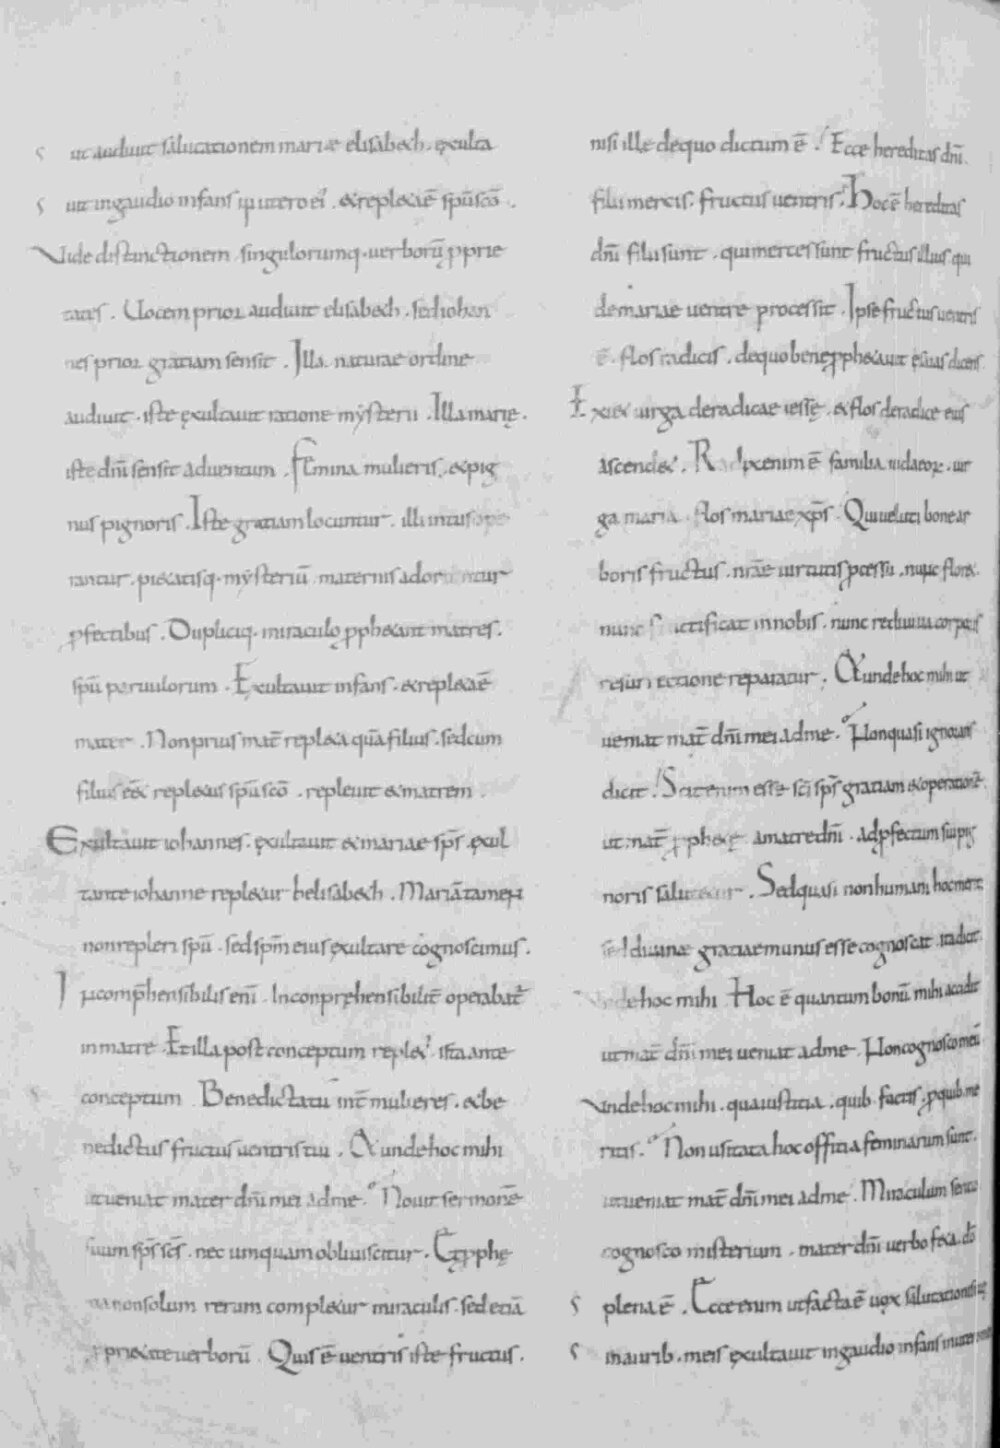 ut audiuit salutationem mariæ elisabeth. exulta
uit in gaudio infans in utero ei'. & repleta ē sp̄u sc̄o.
Vide distinctionem singulorumq. uerborū pprie
tates. Uocem prior audiuit elisabeth. sed iohan
nes prior gratiam sensit. Illa naturae ordine
audiuit. iste exultauit ratione mysterii. Illa marię.
iste dn̄i sensit aduentum. Femina mulieris. & pig
nus pignoris. Iste gratiam locuntur. illi intus ope
rantur. pietatisq. mysteriū maternis adoriuntur
pfectibus. Dupliciq. miraculo pphetant matres.
sp̄u paruulorum. Exultauit infans. & repleta ē
mater. Non prius mat̄ repleta quā filius. sed cum
filius eēt repletus sp̄u sc̄o. repleuit & matrem.
Exultauit iohannes. exultauit & mariae sp̄s. exul
tante iohanne repletur helisabeth. Mariā tamen
non repleri sp̄u. sed sp̄m eius exultare cognoscimus.
Incomp̄hensibilis enī. Inconprehensibilit̄ operabat̄
in matre. Et illa post conceptum replet'. ista ante
conceptum Benedicta tū int̄ mulieres. & be
nedictus fructus uentris tui. Et unde hoc mihi
ut ueniat mater dn̄i mei ad me. Nouit sermonē
suum sp̄s sc̄s. nec umquam obliuiscitur. Et pphę
tia non solum rerum completur miraculis. sed etiā
prietate uerborū Quis ē uentris iste fructus.
nisi ille de quo dictum ē. Ecce hereditas dn̄i.
filii merces. fructus uentris. Hoc ē hereditas
dn̄i filii sunt. qui merces sunt fructus illius qui
de mariae uentre processit. Ipse fructus uentris
ē. flos radicis. de quo bene pphetauit esaias dicens
Exiet uirga de radicae iessę. & flos de radice eius
ascendet'. Radix enim ē familia iudaeoꝝ. uir
ga maria. flos mariae xp̄s. Qui ueluti bone ar
boris fructus. nr̄ae uirtutis pcessu. nunc floret.
nunc fructificat in nobis. nunc rediuiua corporis
resurrectione reparatur. Et unde hoc mihi ut
ueniat mat̄ dn̄i mei ad me. Non quasi ignorans
dicit. Scit enim esse sc̄i sp̄s gratiam & operationē.
ut mat̄ pphetę a matre dn̄i. ad pfectum sui pig
noris salutetur. Sed quasi non humani hoc meriti
sed diuinae gratiae munus esse cognoscat. ita dicit.
Vnde hoc mihi Hoc ē quantum bonū mihi accidit
ut mat̄ dn̄i mei ueniat ad me. Non cognosco meū
Vnde hoc mihi. qua iustitia. quib. factis. p quib. me
ritis. Non usitata hoc offitia feminarum sunt.
ut ueniat mat̄ dn̄i mei ad me. Miraculum sentio
cognosco misterium. mater dn̄i uerbo feta. dō
plena ē. Ecce enim ut facta ē uox salutationis
in aurib. meis exultauit in gaudio infans in utero